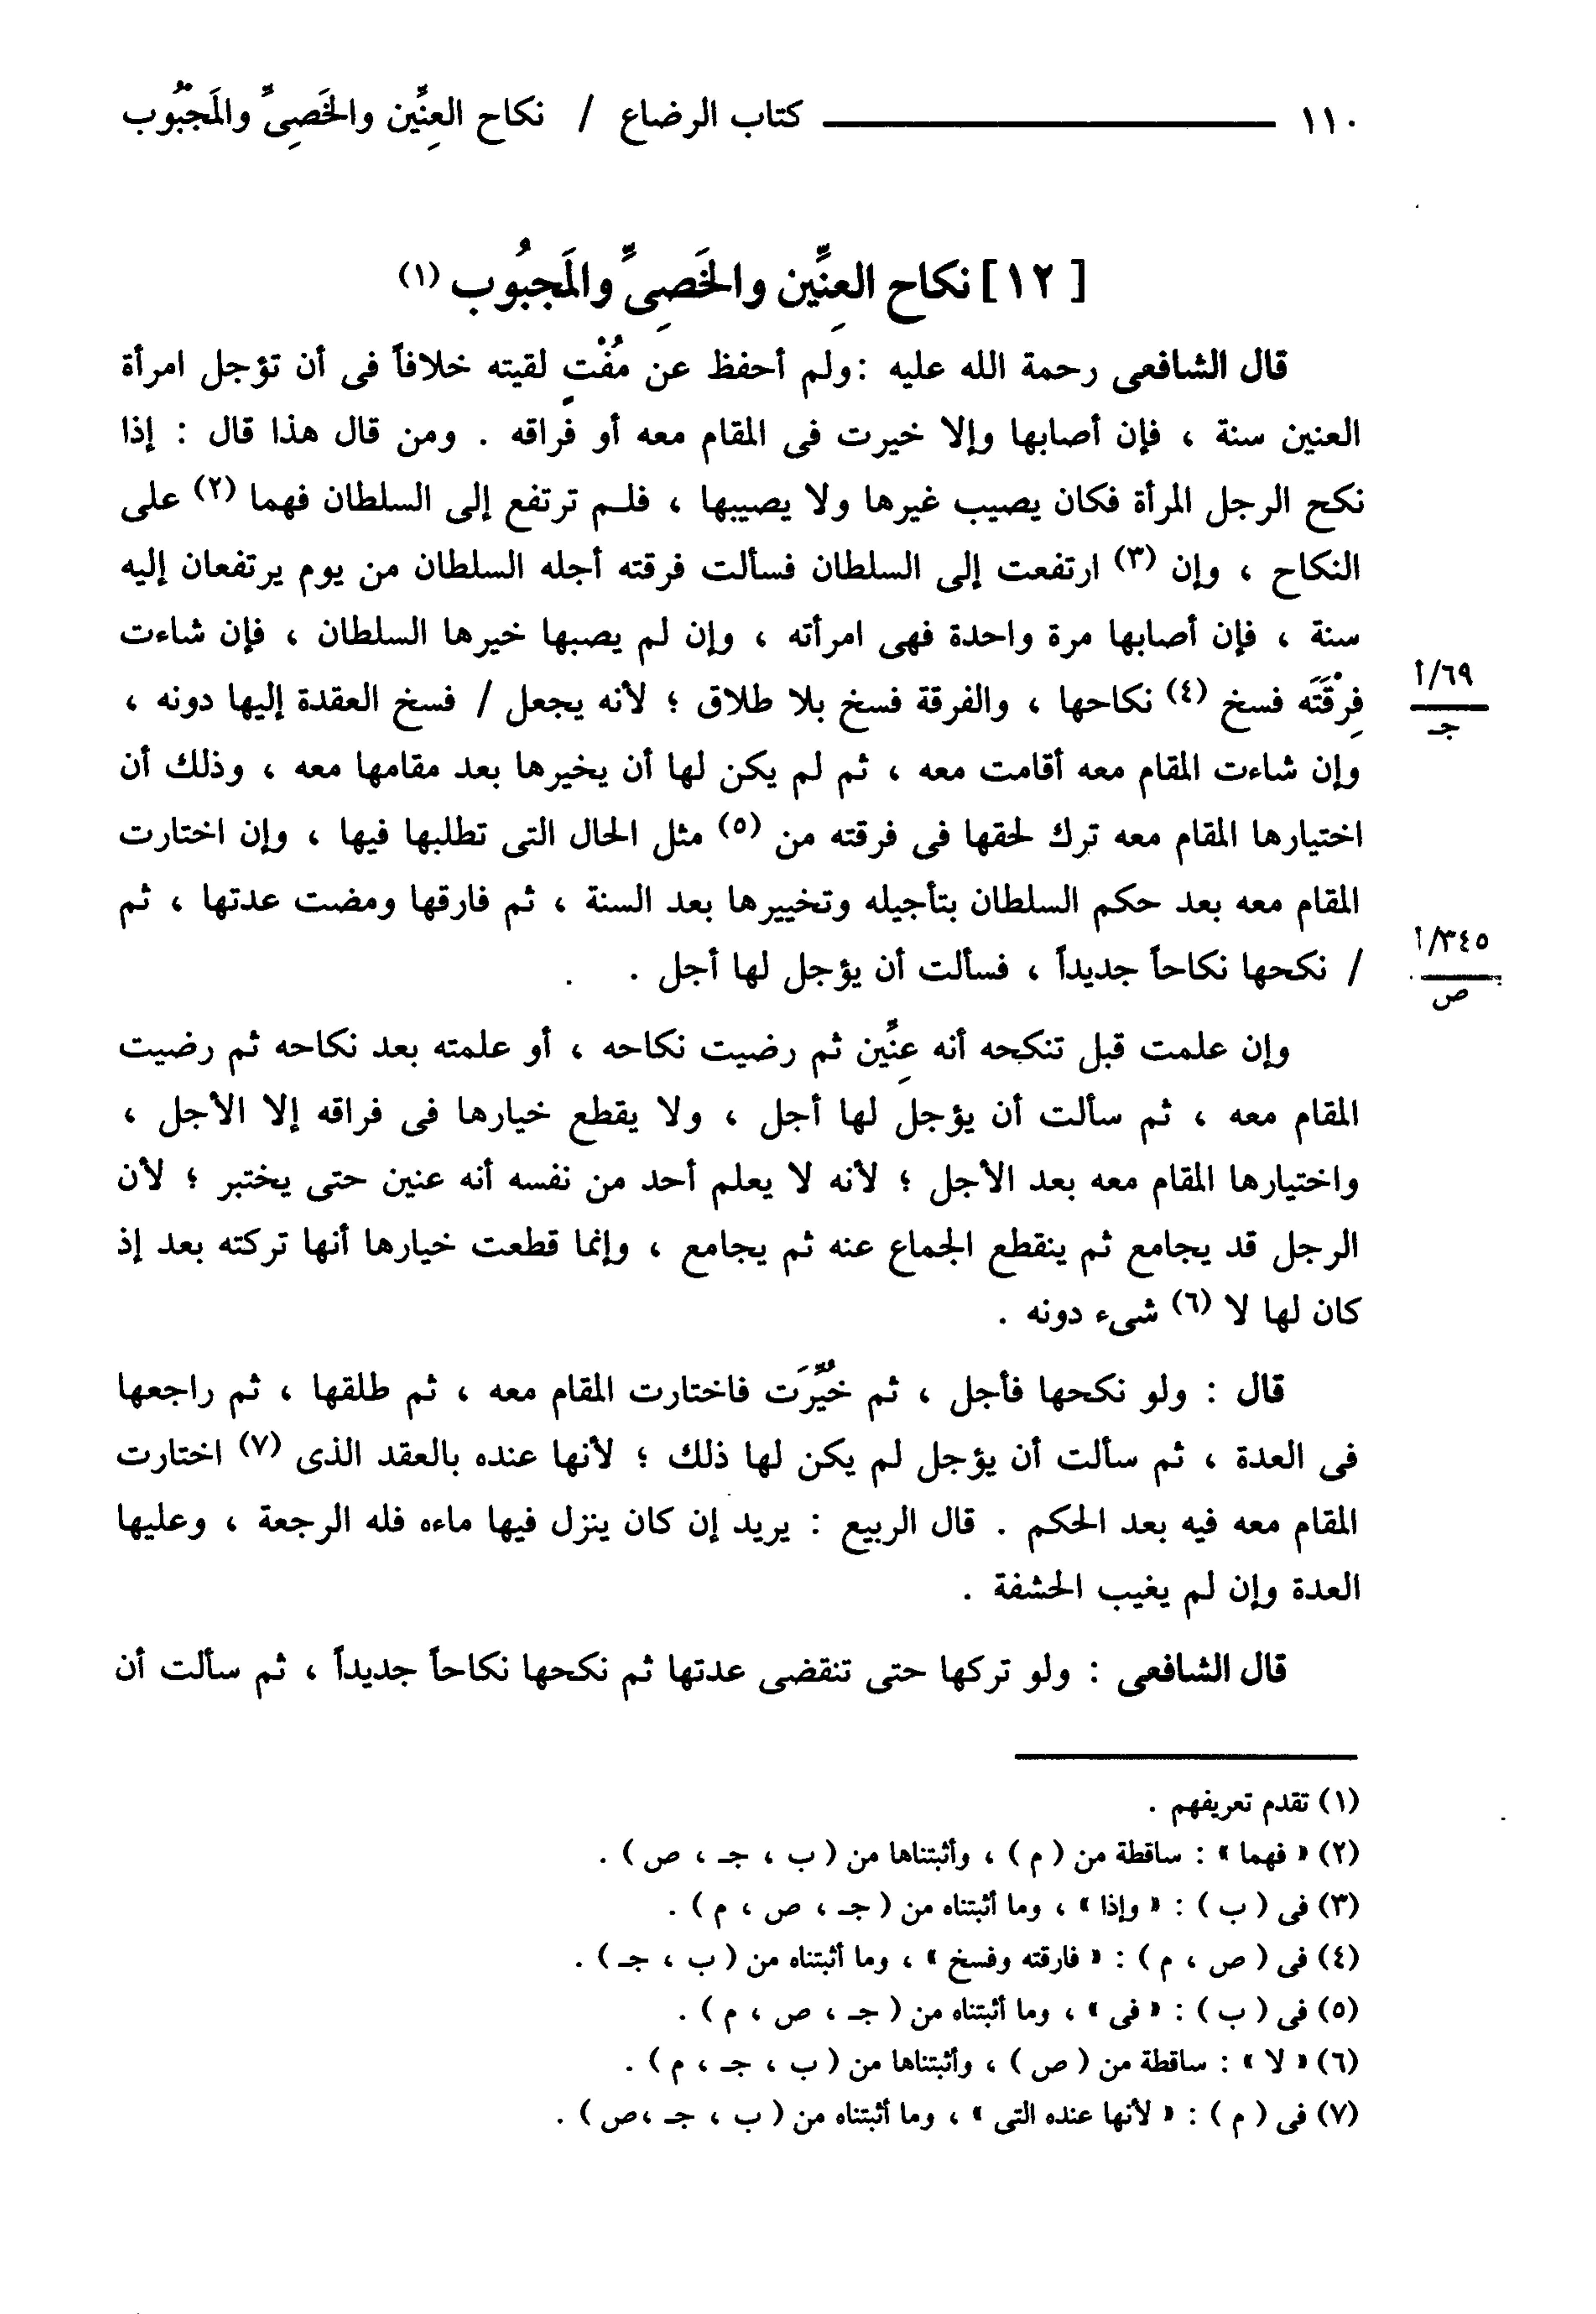 ١١٠ كتاب الرضاع / نكاح العِنِّين والخَصِىِّ والمَجبُوب
[ ١٢ ] نكاح العِنِّين والخَصِىِّ والمَجبُوب (١)
قال الشافعى رحمة الله عليه : ولم أحفظ عن مُفْتٍ لقيته خلافاً فى أن تؤجل امرأة
العنين سنة ، فإن أصابها وإلا خيرت فى المقام معه أو فراقه . ومن قال هذا قال : إذا
نكح الرجل المرأة فكان يصيب غيرها ولا يصيبها ، فلـم ترتفع إلى السلطان فهما (٢) على
النكاح ، وإن (٣) ارتفعت إلى السلطان فسألت فرقته أجله السلطان من يوم يرتفعان إليه
سنة ، فإن أصابها مرة واحدة فهى امرأته ، وإن لم يصبها خيرها السلطان ، فإن شاءت
١/٦٩
جـ
فِرْقَتَه فسخ (٤) نكاحها ، والفرقة فسخ بلا طلاق ؛ لأنه يجعل / فسخ العقدة إليها دونه ،
وإن شاءت المقام معه أقامت معه ، ثم لم يكن لها أن يخيرها بعد مقامها معه ، وذلك أن
اختيارها المقام معه ترك لحقها فى فرقته من (٥) مثل الحال التى تطلبها فيها ، وإن اختارت
المقام معه بعد حكم السلطان بتأجيله وتخييرها بعد السنة ، ثم فارقها ومضت عدتها ، ثم
١/٣٤٥
ص
/ نكحها نكاحاً جديداً ، فسألت أن يؤجل لها أجل .
وإن علمت قبل تنكحه أنه عِنِّين ثم رضيت نكاحه ، أو علمته بعد نكاحه ثم رضيت
المقام معه ، ثم سألت أن يؤجل لها أجل ، ولا يقطع خيارها فى فراقه إلا الأجل ،
واختيارها المقام معه بعد الأجل ؛ لأنه لا يعلم أحد من نفسه أنه عنين حتى يختبر ؛ لأن
الرجل قد يجامع ثم ينقطع الجماع عنه ثم يجامع ، وإنما قطعت خيارها أنها تركته بعد إذ
كان لها لا (٦) شىء دونه .
قال : ولو نكحها فأجل ، ثم خُيِّرَت فاختارت المقام معه ، ثم طلقها ، ثم راجعها
فى العدة ، ثم سألت أن يؤجل لم يكن لها ذلك ؛ لأنها عنده بالعقد الذى (٧) اختارت
المقام معه فيه بعد الحكم . قال الربيع : يريد إن كان ينزل فيها ماءه فله الرجعة ، وعليها
العدة وإن لم يغيب الحشفة .
قال الشافعى : ولو تركها حتى تنقضى عدتها ثم نكحها نكاحاً جديداً ، ثم سألت أن
(١) تقدم تعريفهم .
(٢) « فهما » : ساقطة من ( م ) ، وأثبتناها من ( ب ، جـ ، ص ) .
(٣) فى ( ب ) : « وإذا » ، وما أثبتناه من ( جـ ، ص ، م ) .
(٤) فى ( ص ، م ) : « فارقته وفسخ » ، وما أثبتناه من ( ب ، جـ ) .
(٥) فى ( ب ) : « فى » ، وما أثبتناه من ( جـ ، ص ، م ) .
(٦) « لا » : ساقطة من ( ص ) ، وأثبتناها من ( ب ، جـ ، م ) .
(٧) فى ( م ) : « لأنها عنده التى » ، وما أثبتناه من ( ب ، جـ ، ص ) .